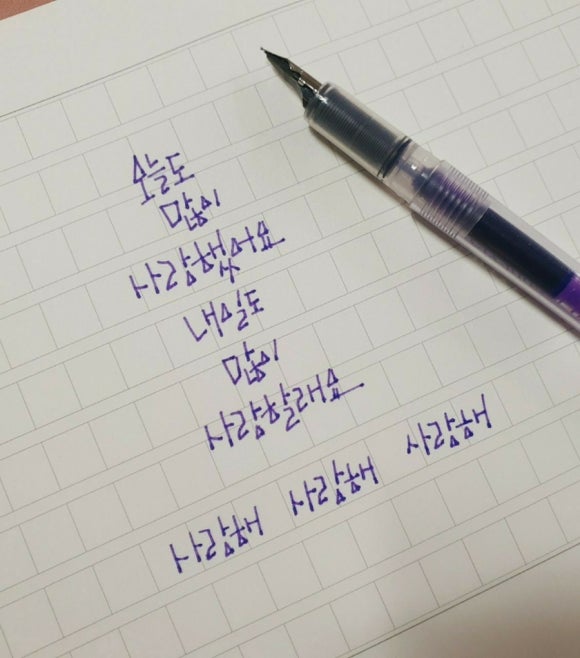 오늘도
많이
사랑했어요
내일도
많이
사랑할래요
사랑해 사랑해 사랑해